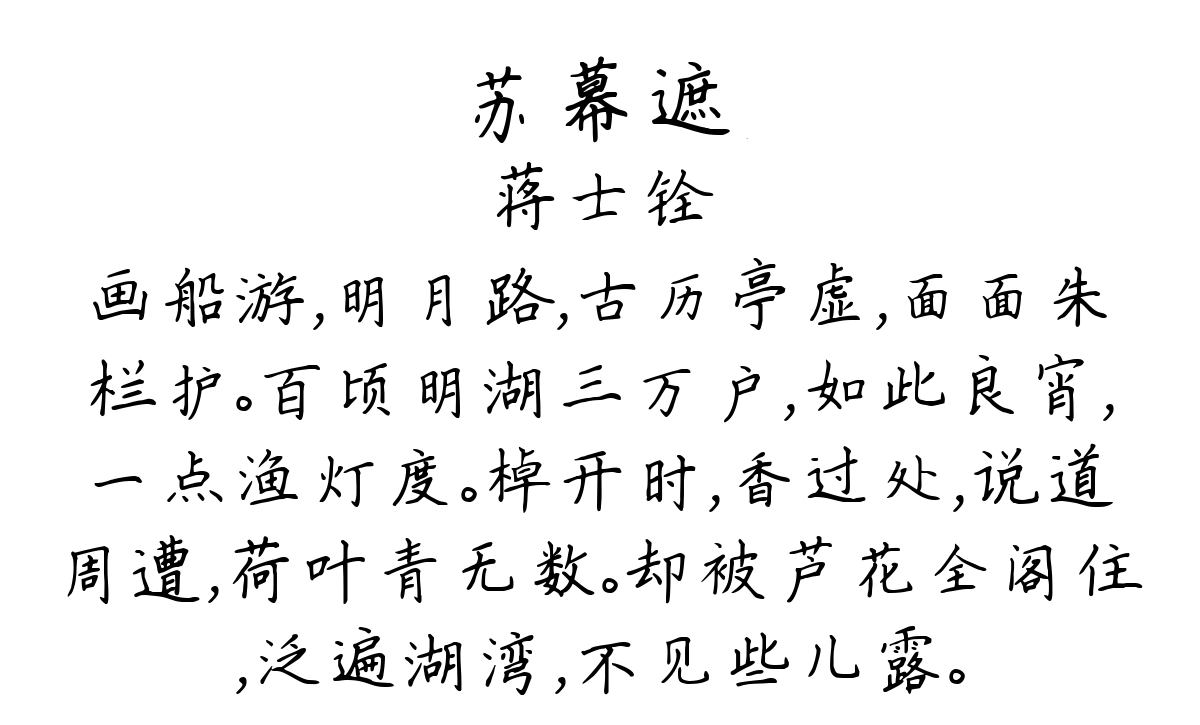 苏幕遮
蒋士铨
画船游,明月路,古历亭虚,面面朱
栏护。百顷明湖三万户,如此良宵,
一点渔灯度。棹开时,香过处,说道
周遭,荷叶青无数。却被芦花全阁住
,泛遍湖湾,不见些儿露。